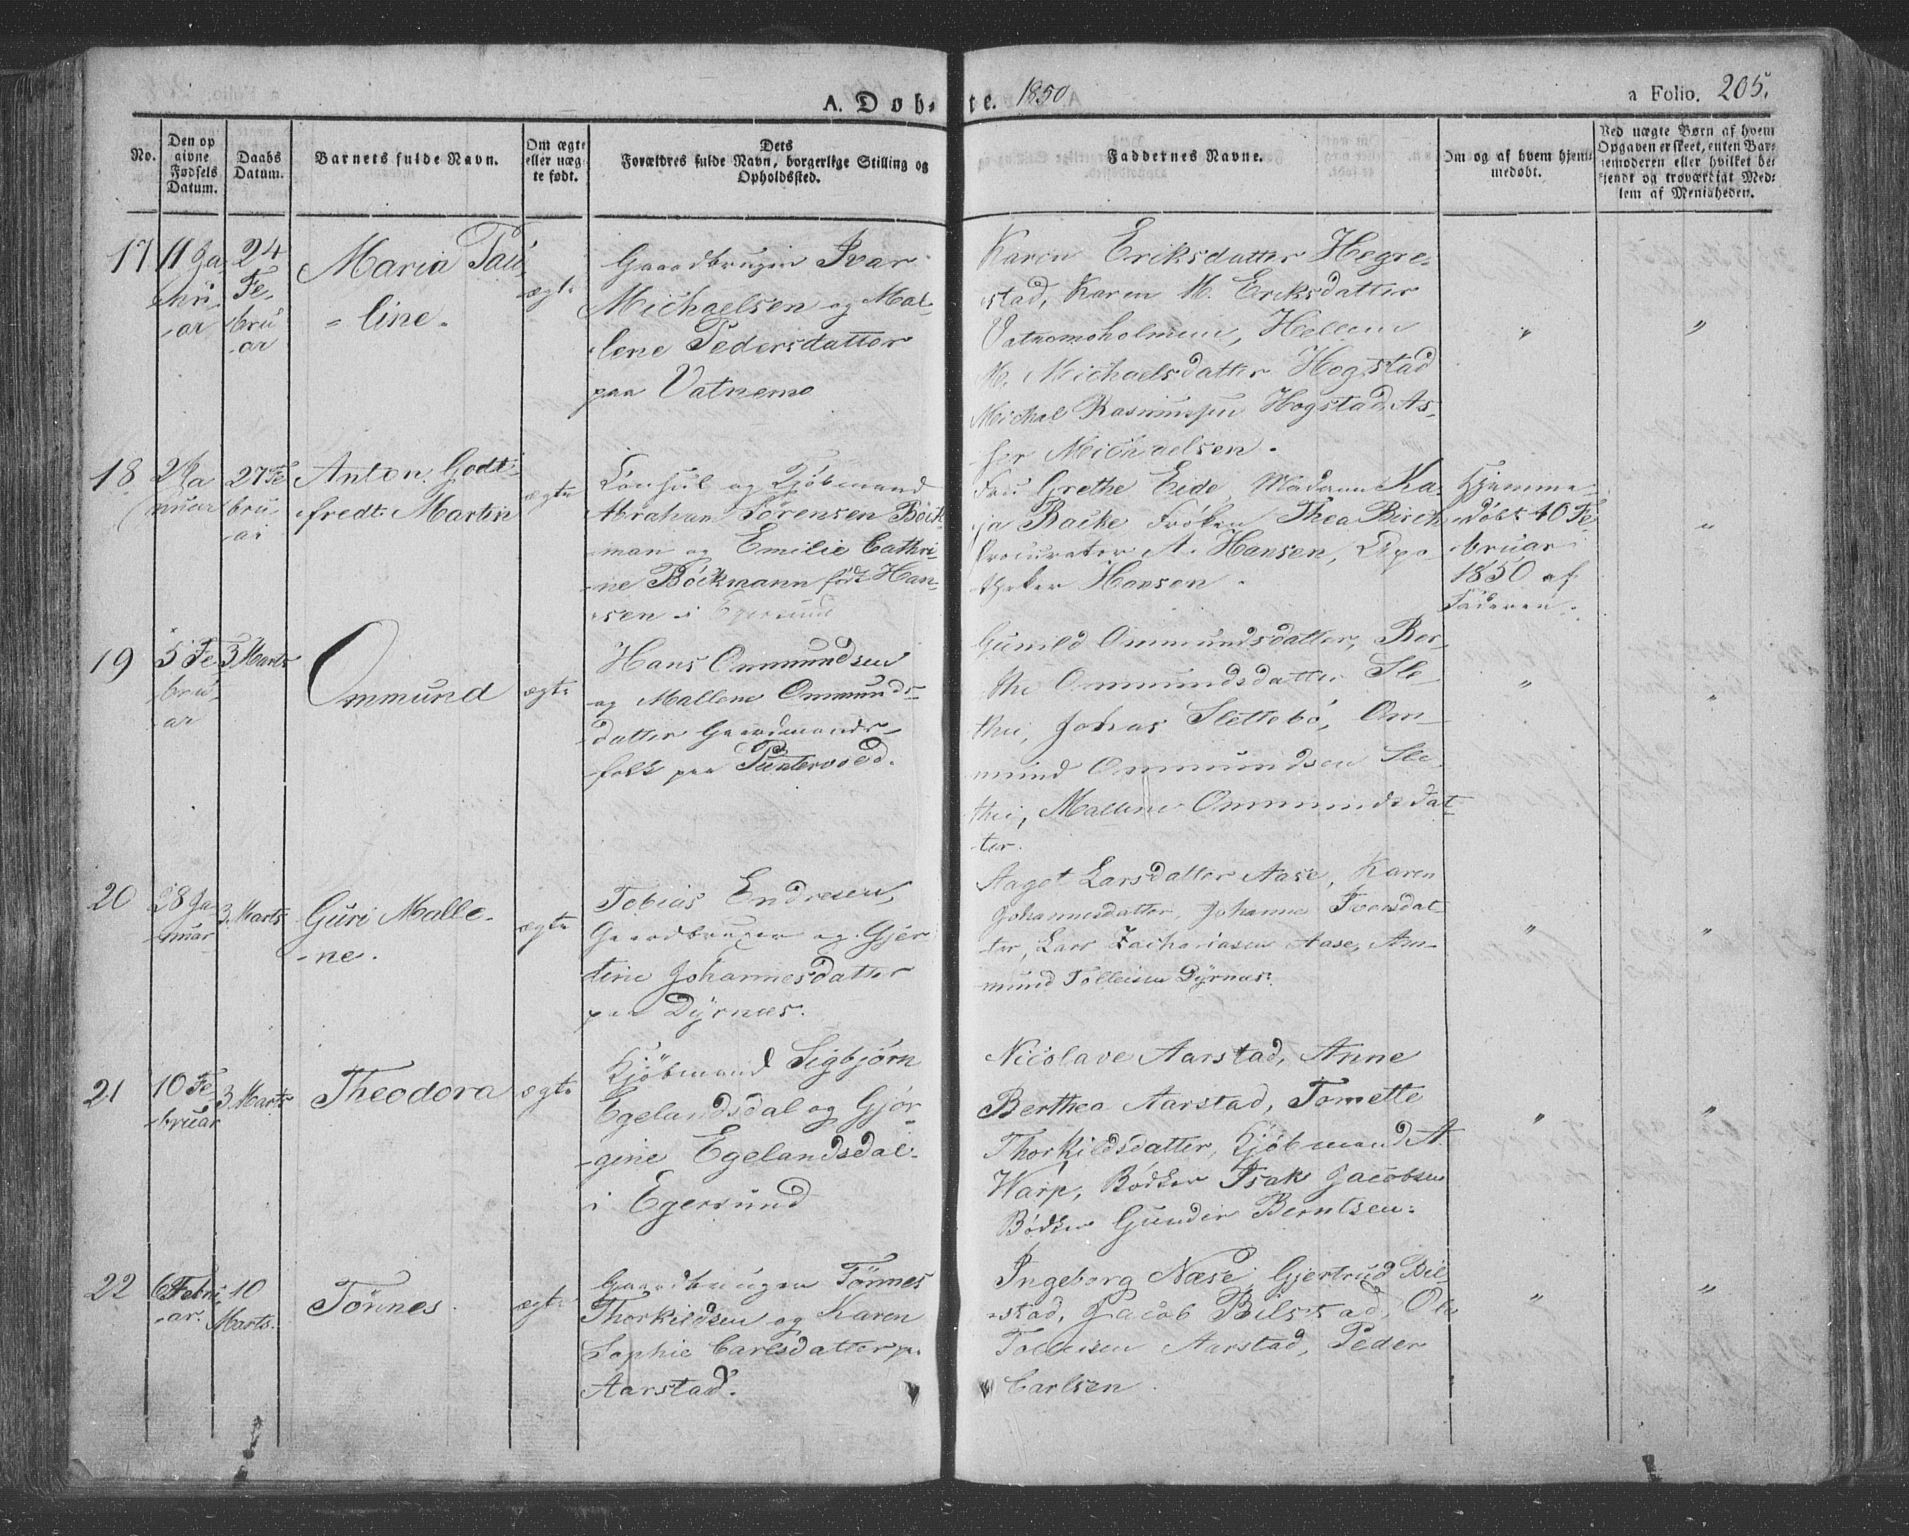 A. Døb-te. 1850
a Folio. 205.
No.
Den op
givne
Fødsels
Datum.
Daabs
Datum.
Barnets fulde Navn.
Om ægte
eller uæg
te født.
Dets
Forældres fulde Navn, borgerlige Stilling og
Opholdssted.
Faddernes Navne.
Om og af hvem hjem-
medøbt.
Ved uægte Børn af hvem
Opgaven er skeet, enten Bar-
nemoderen eller hvilket be-
kjendt og troværdigt Med-
lem af Menigheden.
17
11 Ja
nu
ar
24
Fe-
bru
ar
Maria Pau
line.
ægte
Gaardbruger Ivar
Michaelsen og Mal-
lene Pedersdatter
paa Vatnemo
Karen Eriksdatter Hegre-
stad, Karen M. Eriksdatter
Vatnemoholmen, Hellem
M. Michaelsdatter Hogstad
Michal Rasmussen Hogstad, As-
ser Michaelsen.
"
"
18
2 Ja
nuar
27 Fe
bru-
ar
Anton Godt
fredt Martin
ægte
Consul og Kjöbmand
Abraham Sörensen Böck-
man og Emilie Cathri-
ne Böckmann födt Han-
sen i Egersund
Fru Grethe Eide, Madame Ka-
ja Backe Fröken Thea Birch
Procurator A. Hansen, Apo-
theker Hansen.
Hjemme-
döbt 10 Fe
bruar
1850 af
Faderen.
"
19
5 Fe
bru-
ar
3 Marts
Ommund
ægte
Hans Ommundsen
og Mallene Ommunds-
datter Gaardmands-
folk paa Puntervold.
Gunild Ommundsdatter, Ber-
the Ommundsdatter Sle-
thei, Johas Slettebö, Om-
mund Ommundsen Sle-
thei, Mallene Ommundsdat-
ter.
"
"
20
28 Ja
nuar
3 Marts
Guri Malle-
ne.
ægte
Tobias Endresen,
Gaardbruger og Gjer
tine Johannesdatter
paa Dyrnæs.
Aagot Larsdatter Aase, Karen
Johannesdatter, Johanne Iversdat-
ter, Lars Zachariasen Aase, Am-
mund Tolleisen Dyrnæs.
"
"
21
10 Fe-
bruar
3 Marts
Theodora
ægte
Kjöbmand Sigbjörn
Egelandsdal og Gjör-
gine Egelandsdal
i Egersund
Nicolave Aarstad, Anne
Berthea Aarstad, Tomette
Thorkildsdatter, Kjöbmand A.
Warp, Bödker Isak Jacobsen
Bödker Gunder Berntsen.
"
"
22
6 Febru
ar.
10
Marts.
Tönnes
ægte
Gaardbruger Tönnes
Thorkildsen og Karen
Sophie Carlsdatter p.
Aarstad.
Ingeborg Næse, Gjertrud Bil-
stad, Jacob Bilstad, Ole
Tolleisen Aarstad, Peder
Carlsen
"
"